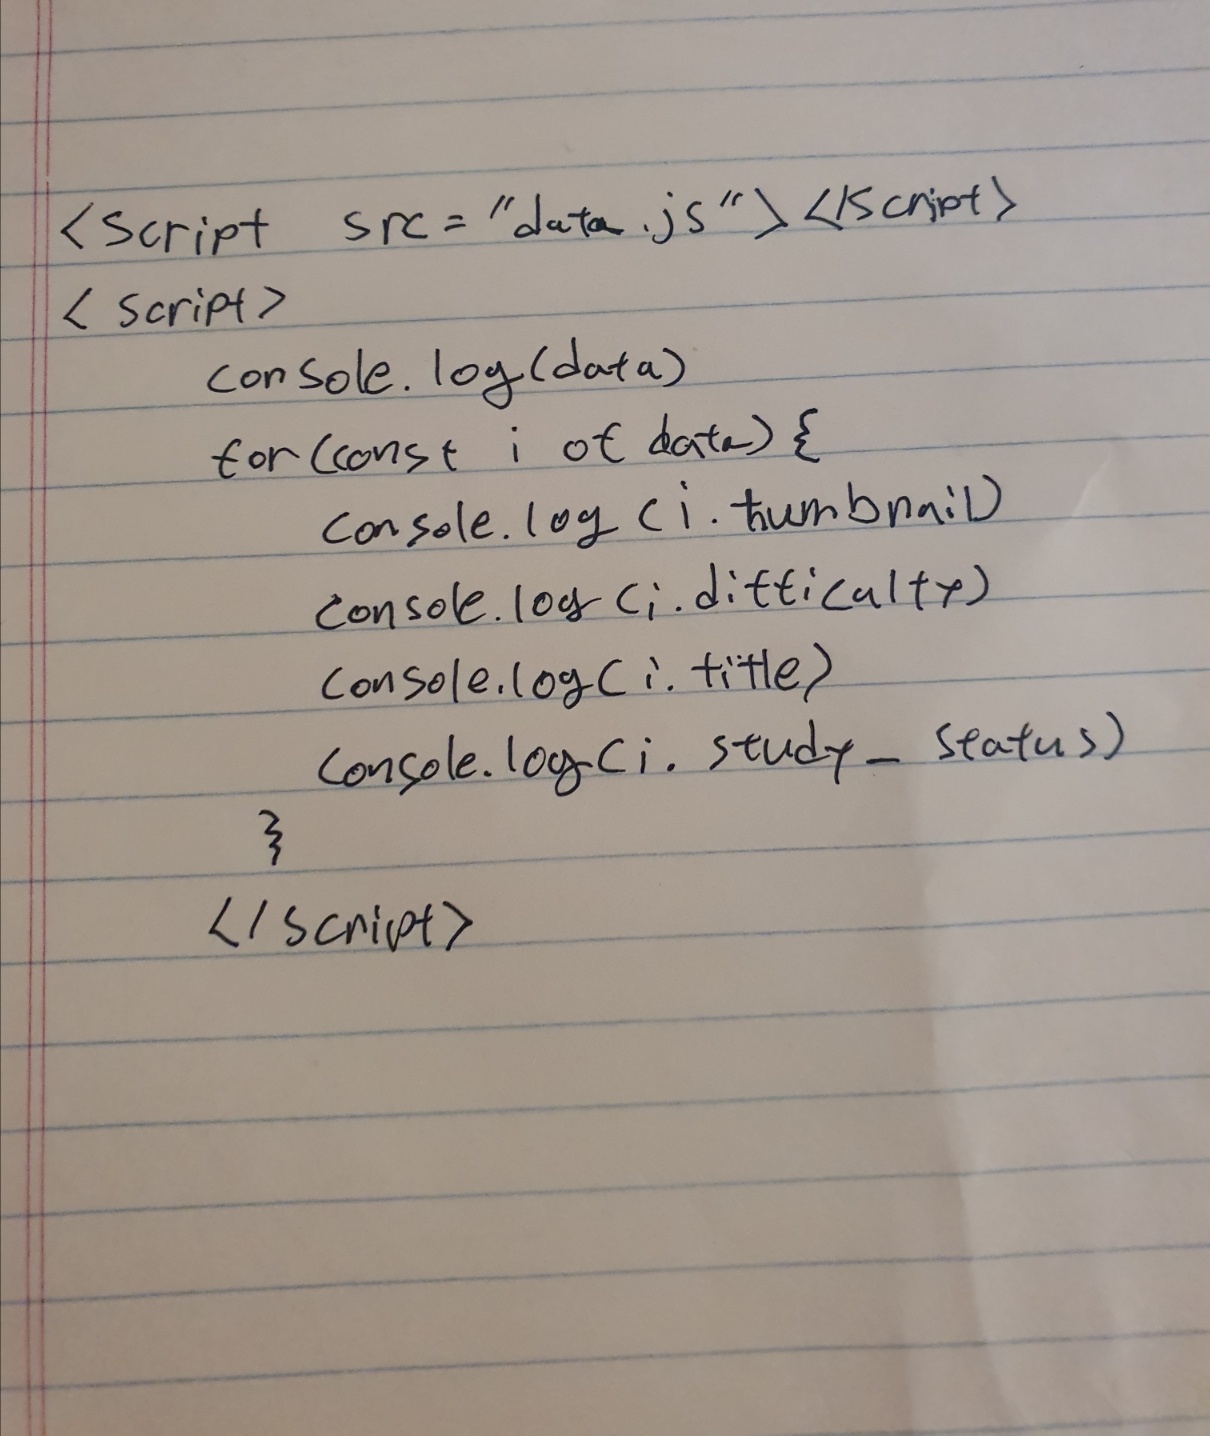 <script src="data.js"></script>
<script>
console.log(data)
for(const i of data){
console.log(i.tumbnail)
console.log(i.difficalty)
console.log(i.title)
console.log(i.study_status)
}
</script>